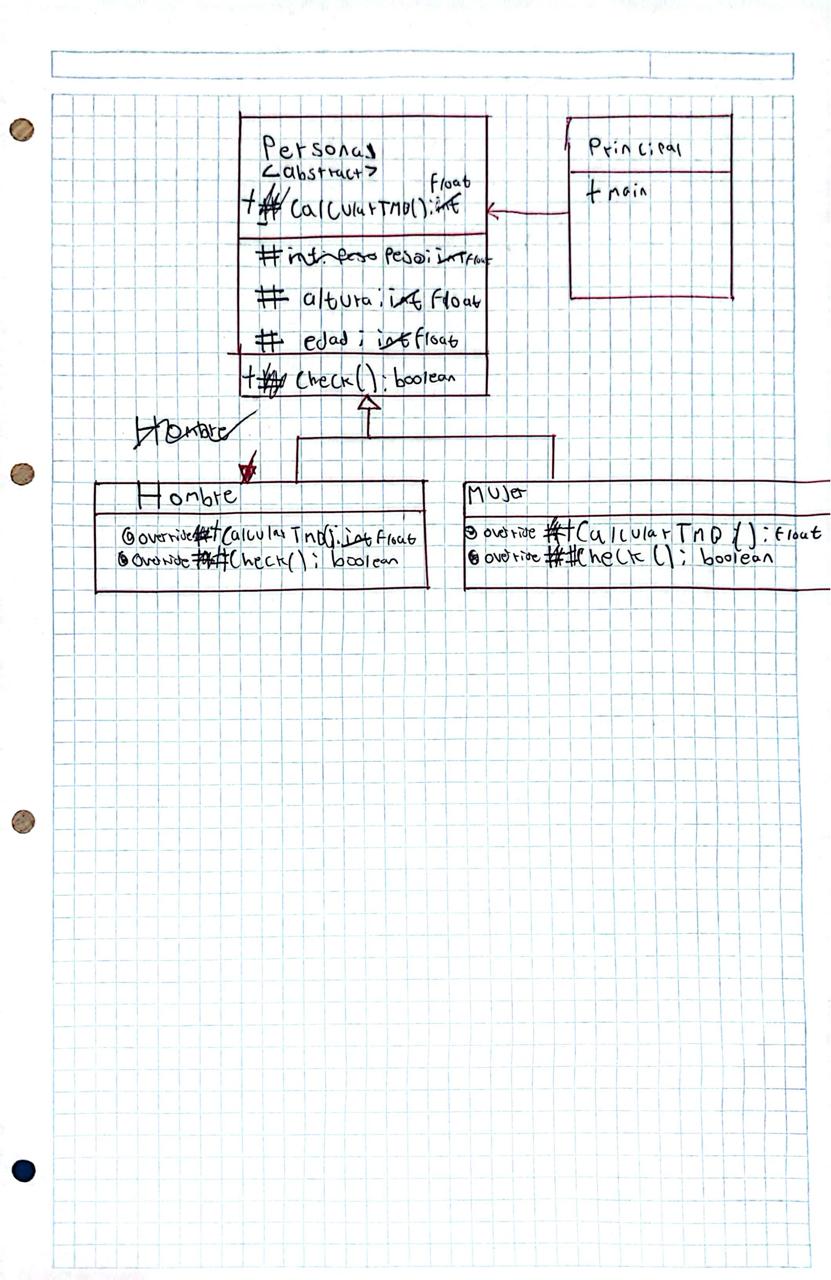 Personas
<abstract>
float
+ # CalcularTMB(): int
# int: peso peso: int float
# altura: int float
# edad: int float
+ # Check(): boolean
Principal
+ main
Hombre
Hombre
@override # + CalcularTMB(): int float
@override ## Check(): boolean
Mujer
@override # + CalcularTMB(): float
@override ## Check(): boolean